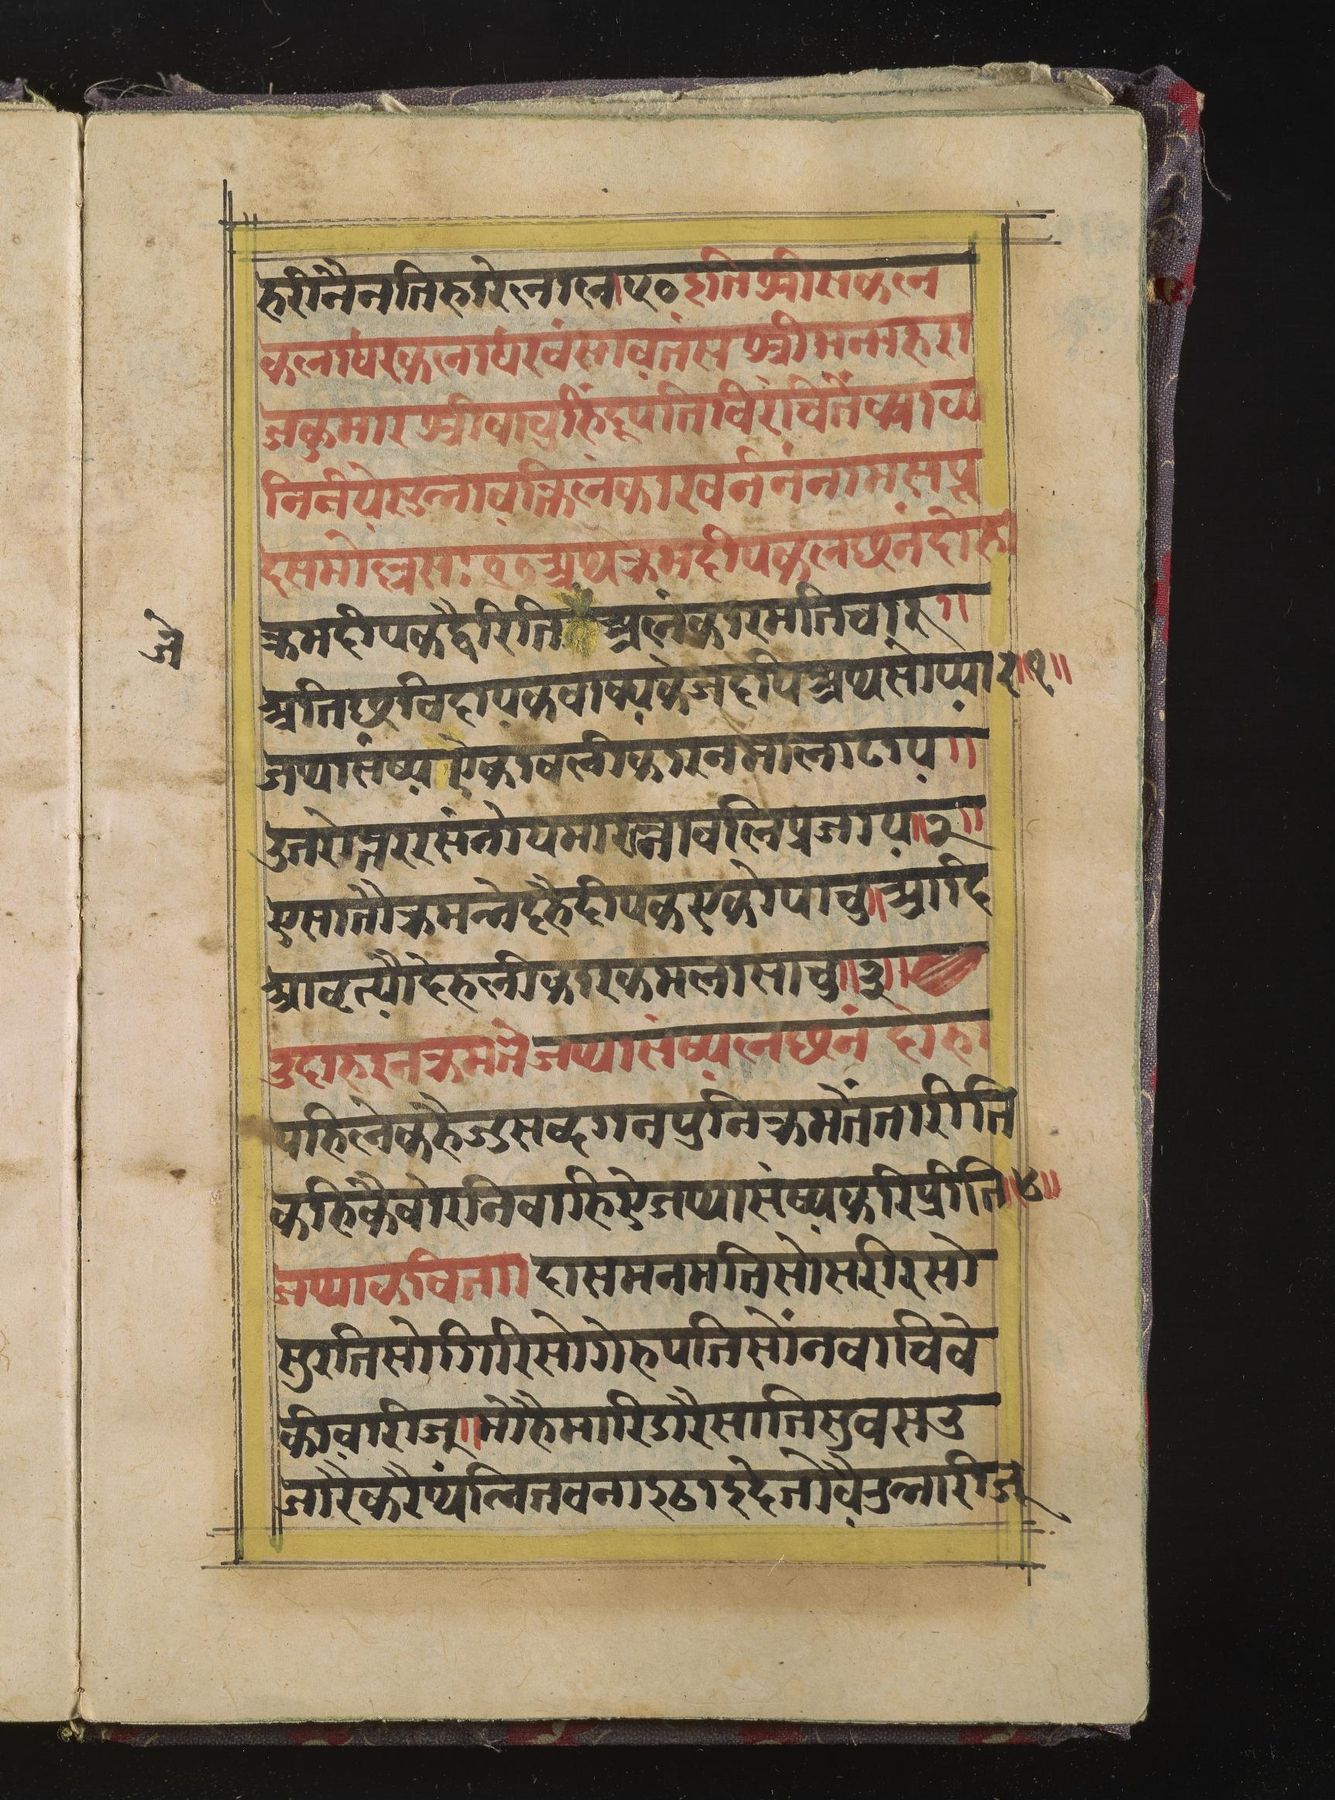 हरीनैनतिहारेलाल।५०इतिश्रीसकल
कलाधरकलाधरवंसावतंस श्रीमन्महरा
जकुमार श्रीवावुहिंदूपतिविरंचितेंकाव्य
निर्नयेउल्लावलिलंकारवर्ननंनामसप्रू
दसमोल्लास: १७अथक्रमदीपकलछनंदोहा
क्रमदीपकद्वैरिति अलंकारमतिचारु॥
अतिछविदायकवाष्यकेजदपिअथसोंप्यारु॥१॥
जथासंष्यएैकावलीकारनमालाठाय॥
उतरोत्तररसंनोपमारत्नावलिप्रजाय॥२॥
एसातौक्रमभेदहैदीपकएकोपाचु॥आदि
आवृत्यौदेहलीकारकमलासाचु॥३॥
उदाहरनक्रमतेजथासंष्यलछनं दोहा
पहिलेकहैजुसब्दगनपुनिक्रमतेंतारीति
कहिकैवोरनिवाहिऐजथासंष्यकरिप्रीति॥४॥
जथाकविता॥दासमनमतिसोसरीरसो
सुरतिसोगिरिसोगेहपतिसोंनवाविवे
कीवारीजू॥मोहैमारिडारैसातिसुवसउ
जारैकरैथंलितवनाइठाइदेतोवैउत्तारीजू
जे